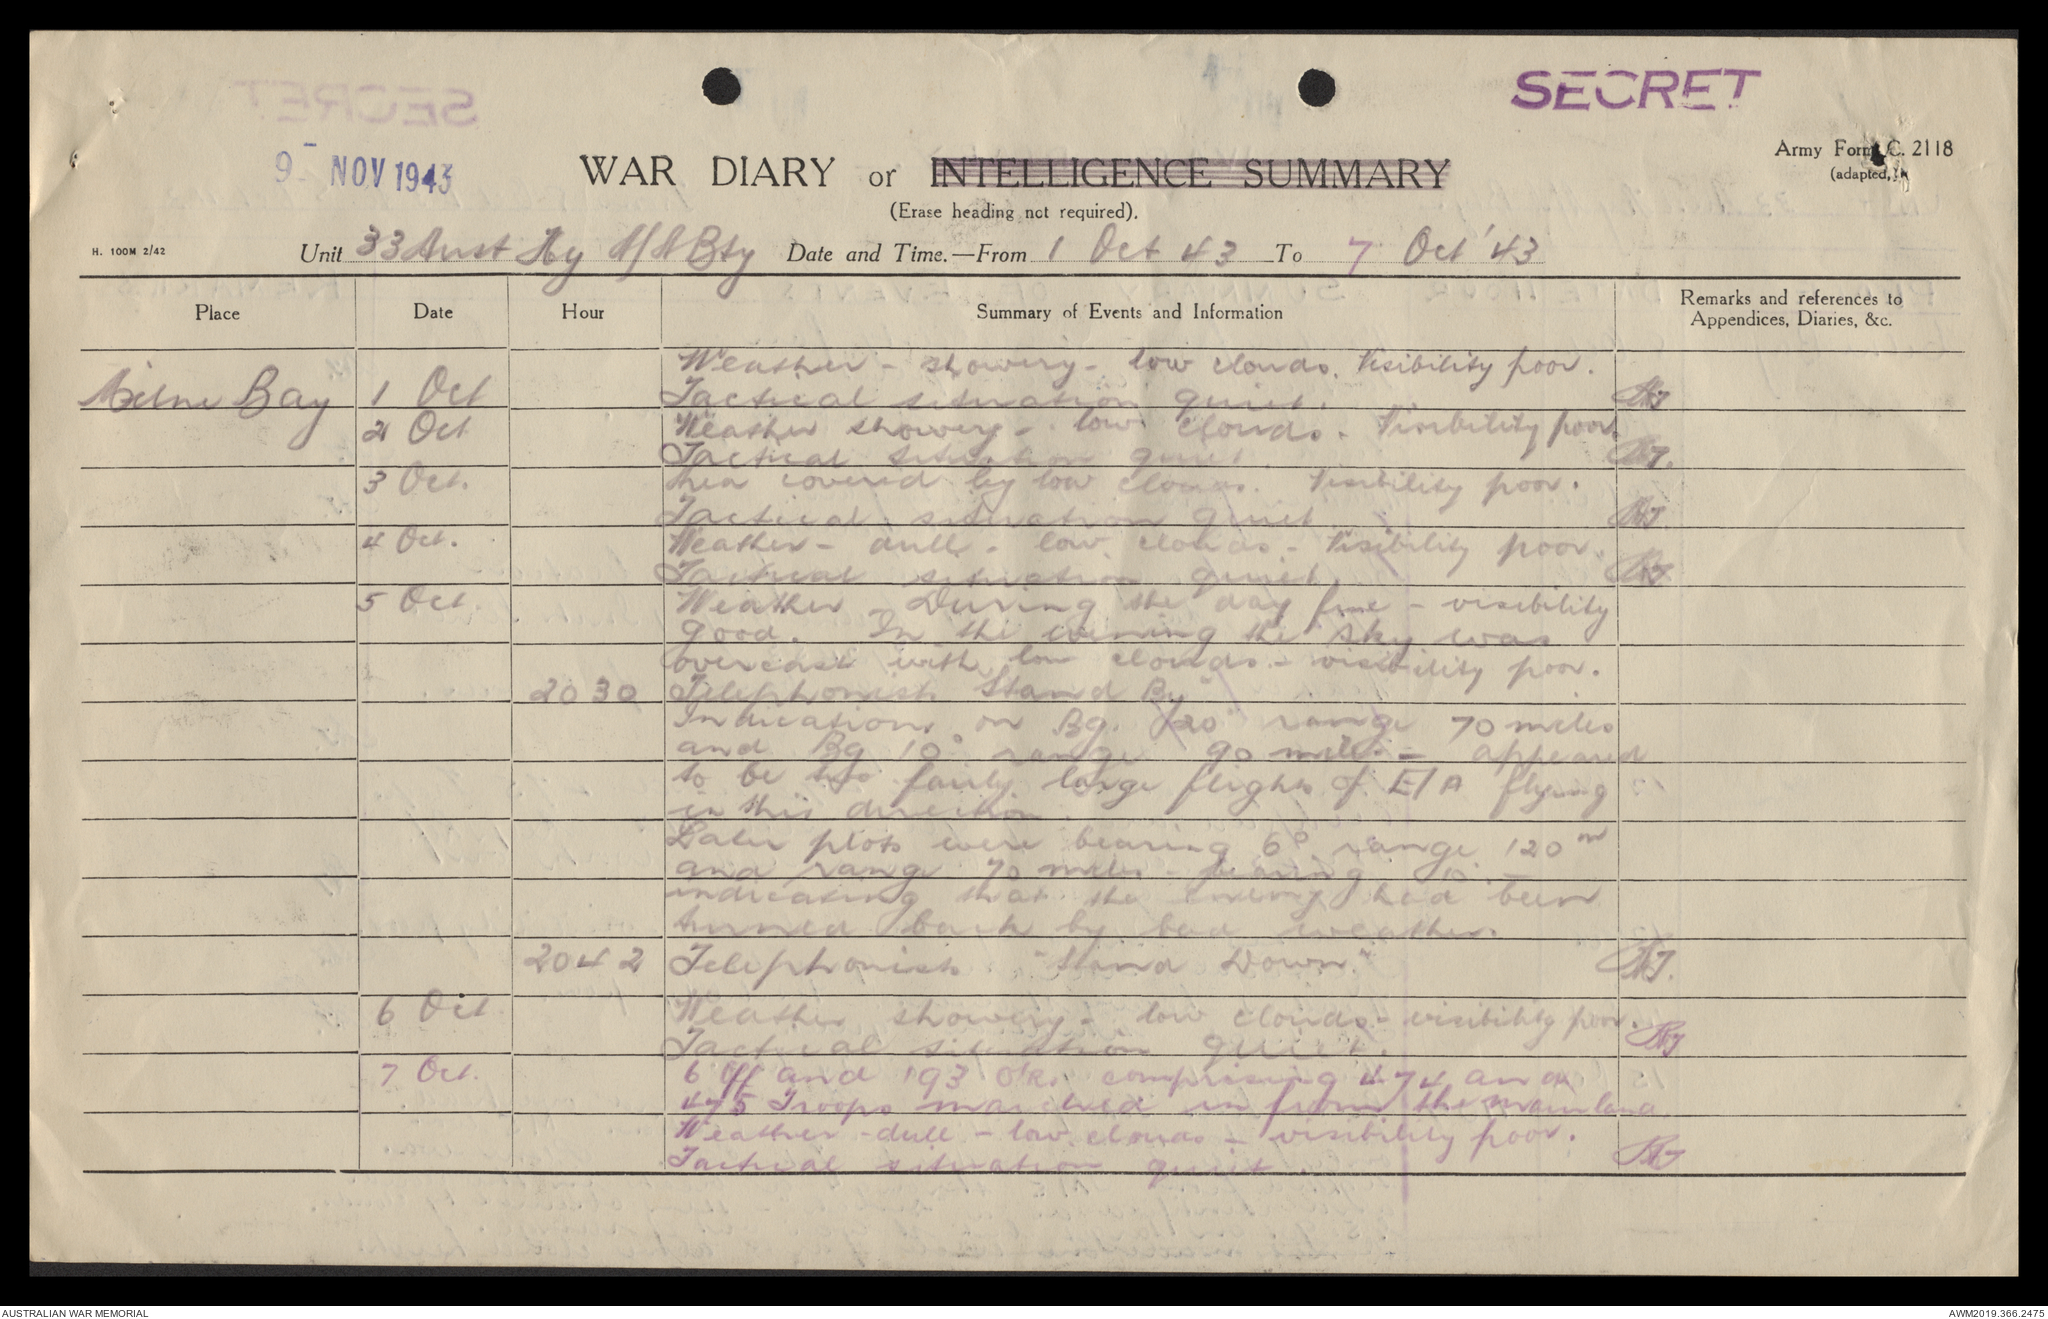 SECRET
9 - NOV 1943
WAR DIARY or INTELLIGENCE SUMMARY
Army Form C. 2118
(adapted.)
(Erase heading not required).
H. 100M 2/42
Unit 33 Aust Hy A/A Bty Date and Time.—From 1 Oct 43 To 7 Oct '43
Place Date Hour Summary of Events and Information Remarks and references to
Appendices, Diaries, &c.
Weather - showery - low clouds. Visibility poor.
Milne Bay 1 Oct Tactical situation quiet.
2 Oct Weather showery - low clouds - Visibility poor.
Tactical situation quiet.
3 Oct. Area covered by low clouds. Visibility poor.
Tactical situation quiet
4 Oct. Weather - dull - low clouds - Visibility poor.
Tactical situation quiet.
5 Oct. Weather - During the day fine - visibility
good. In the evening the sky was
overcast with low clouds - visibility poor.
2030 Telephonists Stand By"
Indications on Bg. 120° range 70 miles
and Bg 10° range 90 miles - appeared
to be two fairly large flights of E/A flying
in this direction.
Later plots were bearing 6° range 120 m
and range 70 miles - bearing 10°
indicating that the enemy had been
turned back by bad weather.
2042 Telephonists "Stand Down."
6 Oct Weather showery - low clouds - visibility poor.
Tactical situation quiet.
7 Oct. 6 Off and 193 ORs comprising 474 and
475 Troops marched in from the mainland
Weather - dull - low clouds - visibility poor.
Tactical situation quiet.
AUSTRALIAN WAR MEMORIAL
AWM2019.366.2475